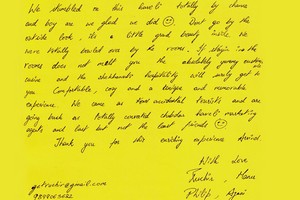 We stumbled on this haveli totally by chance
and boy are we glad we did ☺ Dont go by the
outside look, its a little grand beauty inside. We
were totally bowled over by the rooms. If staying in the
rooms does not melt you the absolutely yummy
cuisine and the shekhawati hospitality will surely get to
you. Comfortable, cosy and a unique and memorable
experience. We came as two accidental tourists and are
going back as totally converted haveli marketing
agents and last but not the least friends ☺
Thank you for this enriching experience
With Love
Ruchir, 
Philip,